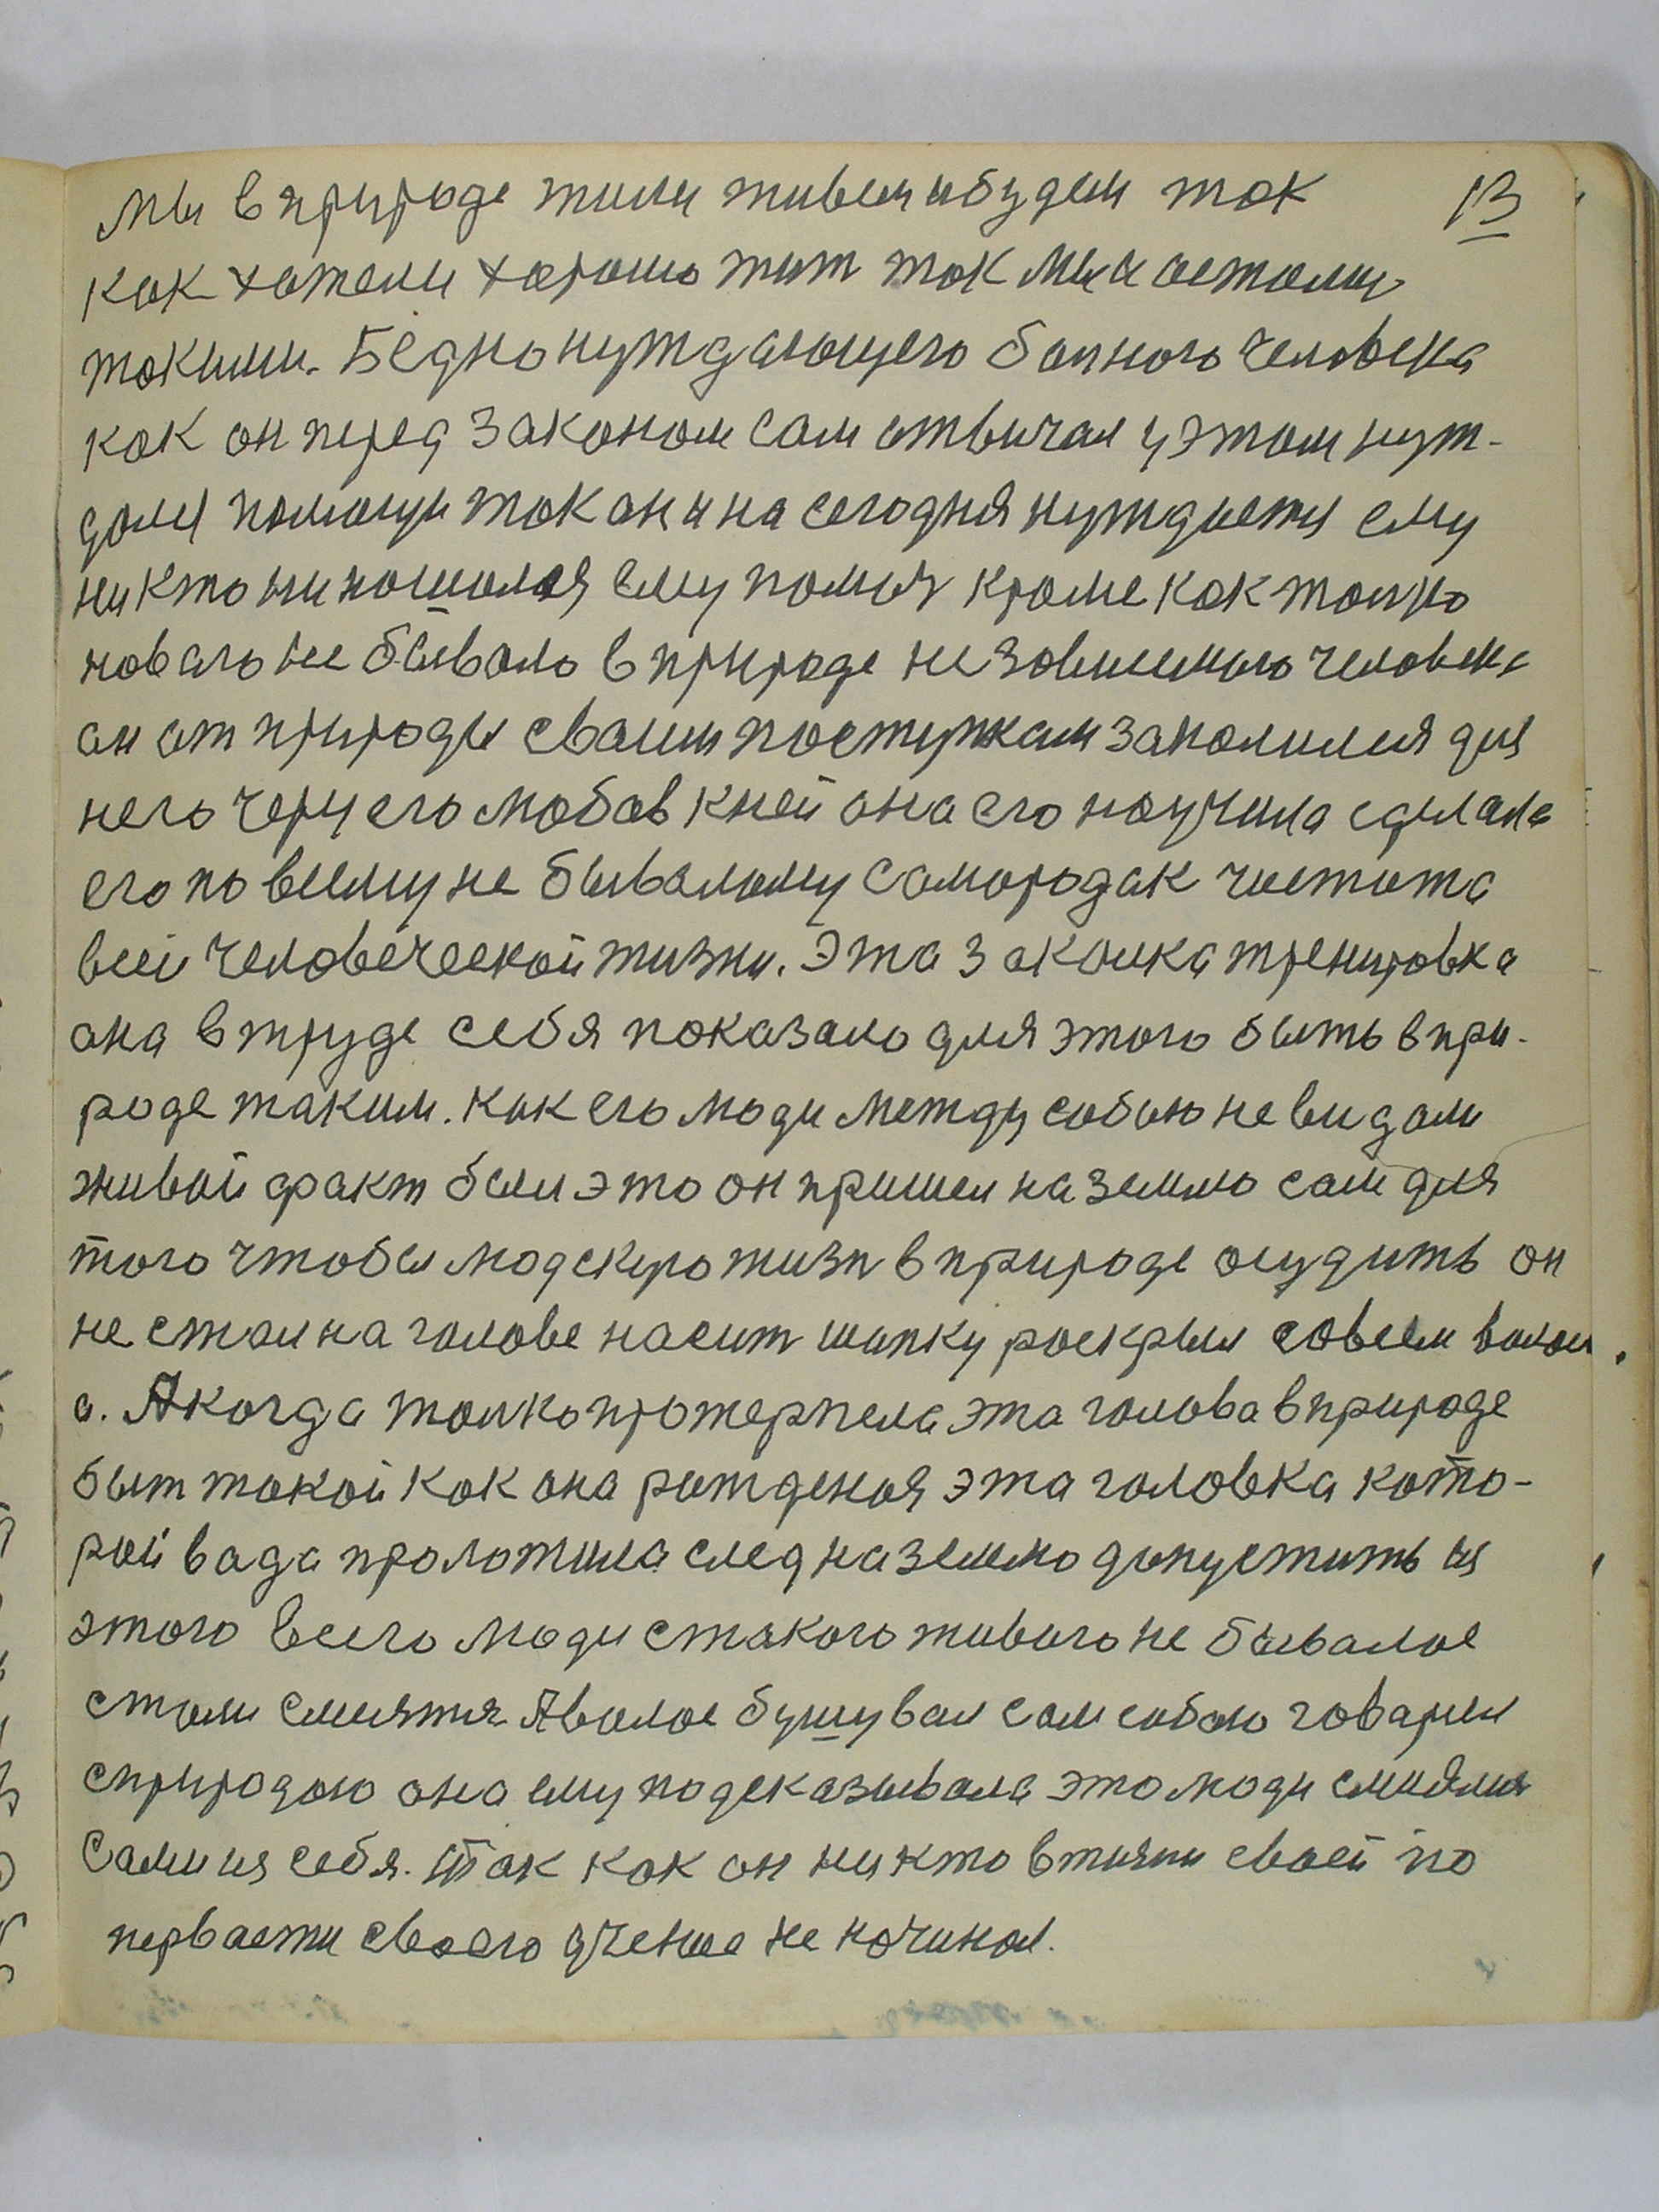 Мы в природе жили живем и будем ток 13
как хотели хорошо жит ток мы и осталис
токими. Бедно нуждающего болного человека
как он перед законом сам отвичал у этом нуж-
дался помощи ток он и на сегодня нуждается ему
никто ни нашолся ему помоч кроме как толко
нового не бывало в природе независимого человека
он от природы своим поступкам заполился для
него чериз его любов к ней она его научила сделала
его по всему не бывалому самородак чистота
всей человеческой жизни. Эта закалка тренировка
она в труде себя показало для этого быть в при-
роде таким. Как его люди между собою не видали
живой факт был это он пришел на землю сам для
того чтобы людскую жизн в природе осудить он
не стал на голове насит шапку роскрыл совсем волос
а. А когда толко протерпела эта голова в природе
быт токой как она рожденая эта головка кото-
рой вада проложила след на землю допустить из
этого всего люди с такого живого не бывалое
стали смиятся. А волос бушувал сам собою говарил
с природою она ему подсказывала это люди смиялис
сами из себя. Так как он никто в жизни своей по
первасти своего учение не начинал.